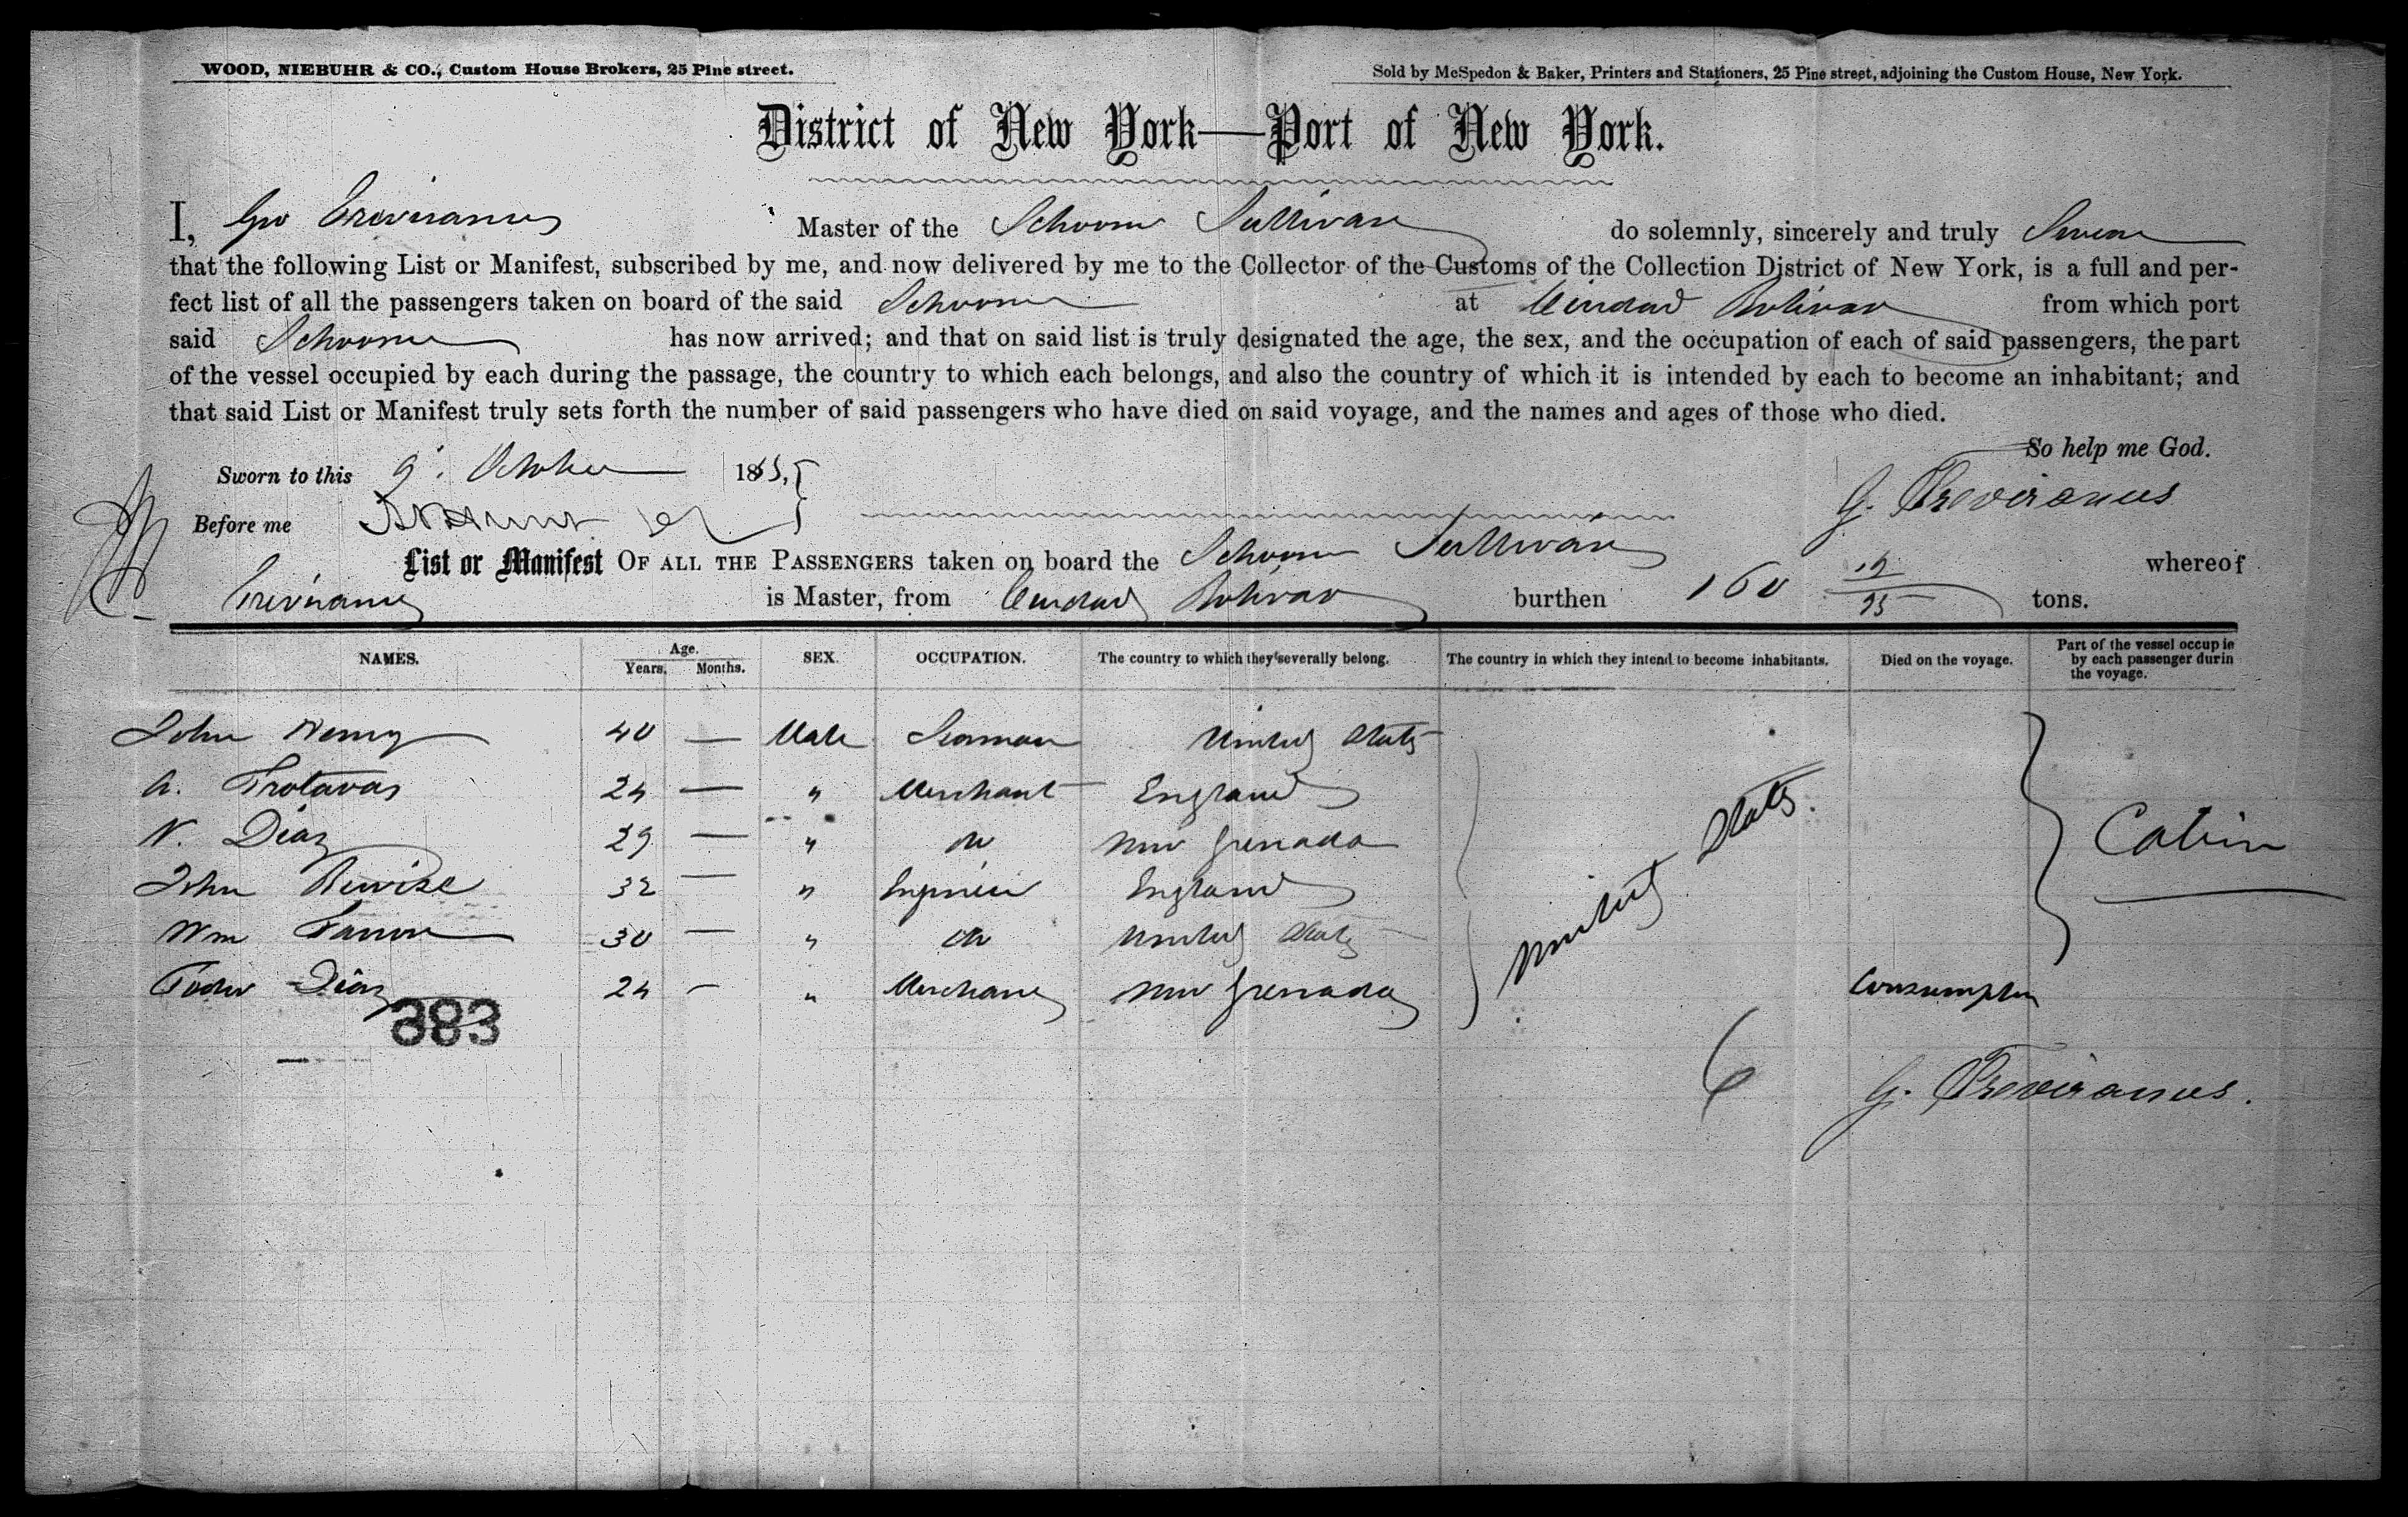 WOOD, NIEBUHR & CO., Custom House Brokers, 25 Pine street.
Sold by McSpedon & Baker, Printers and Stationers, 25 Pine street, adjoining the Custom House, New York.
District of New York—Port of New York.
I, Geo Treviranus Master of the Schooner Sullivan do solemnly, sincerely and truly Swear
that the following List or Manifest, subscribed by me, and now delivered by me to the Collector of the Customs of the Collection District of New York, is a full and per-
fect list of all the passengers taken on board of the said Schooner at Ciudad Bolivar from which port
said Schooner has now arrived; and that on said list is truly designated the age, the sex, and the occupation of each of said passengers, the part
of the vessel occupied by each during the passage, the country to which each belongs, and also the country of which it is intended by each to become an inhabitant; and
that said List or Manifest truly sets forth the number of said passengers who have died on said voyage, and the names and ages of those who died.
So help me God.
Sworn to this 9 October 1865,
G. Treviranus
Before me
List or Manifest OF ALL THE PASSENGERS taken on board the Schooner Sullivan whereof
Treviranus is Master, from Ciudad Bolivar burthen 160 19/95 tons.
NAMES. Age. Years. Months. SEX. OCCUPATION. The country to which they severally belong. The country in which they intend to become inhabitants. Died on the voyage. Part of the vessel occupie by each passenger durin the voyage.
John Henry 40 — Male Seaman United States
A. Frotavas 24 — " Merchant England
N. Diaz 29 — " do New Grenada
John 32 — " Engineer England
Wm 30 — " do United States
Diaz 24 - " Merchant New Grenada Consumption
United States.
Cabin
383
6
G. Treviranus.